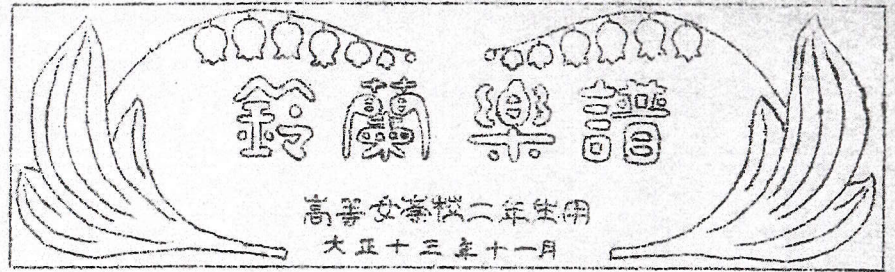 鈴蘭楽譜
高等女学校二年生用
大正十三年十一月